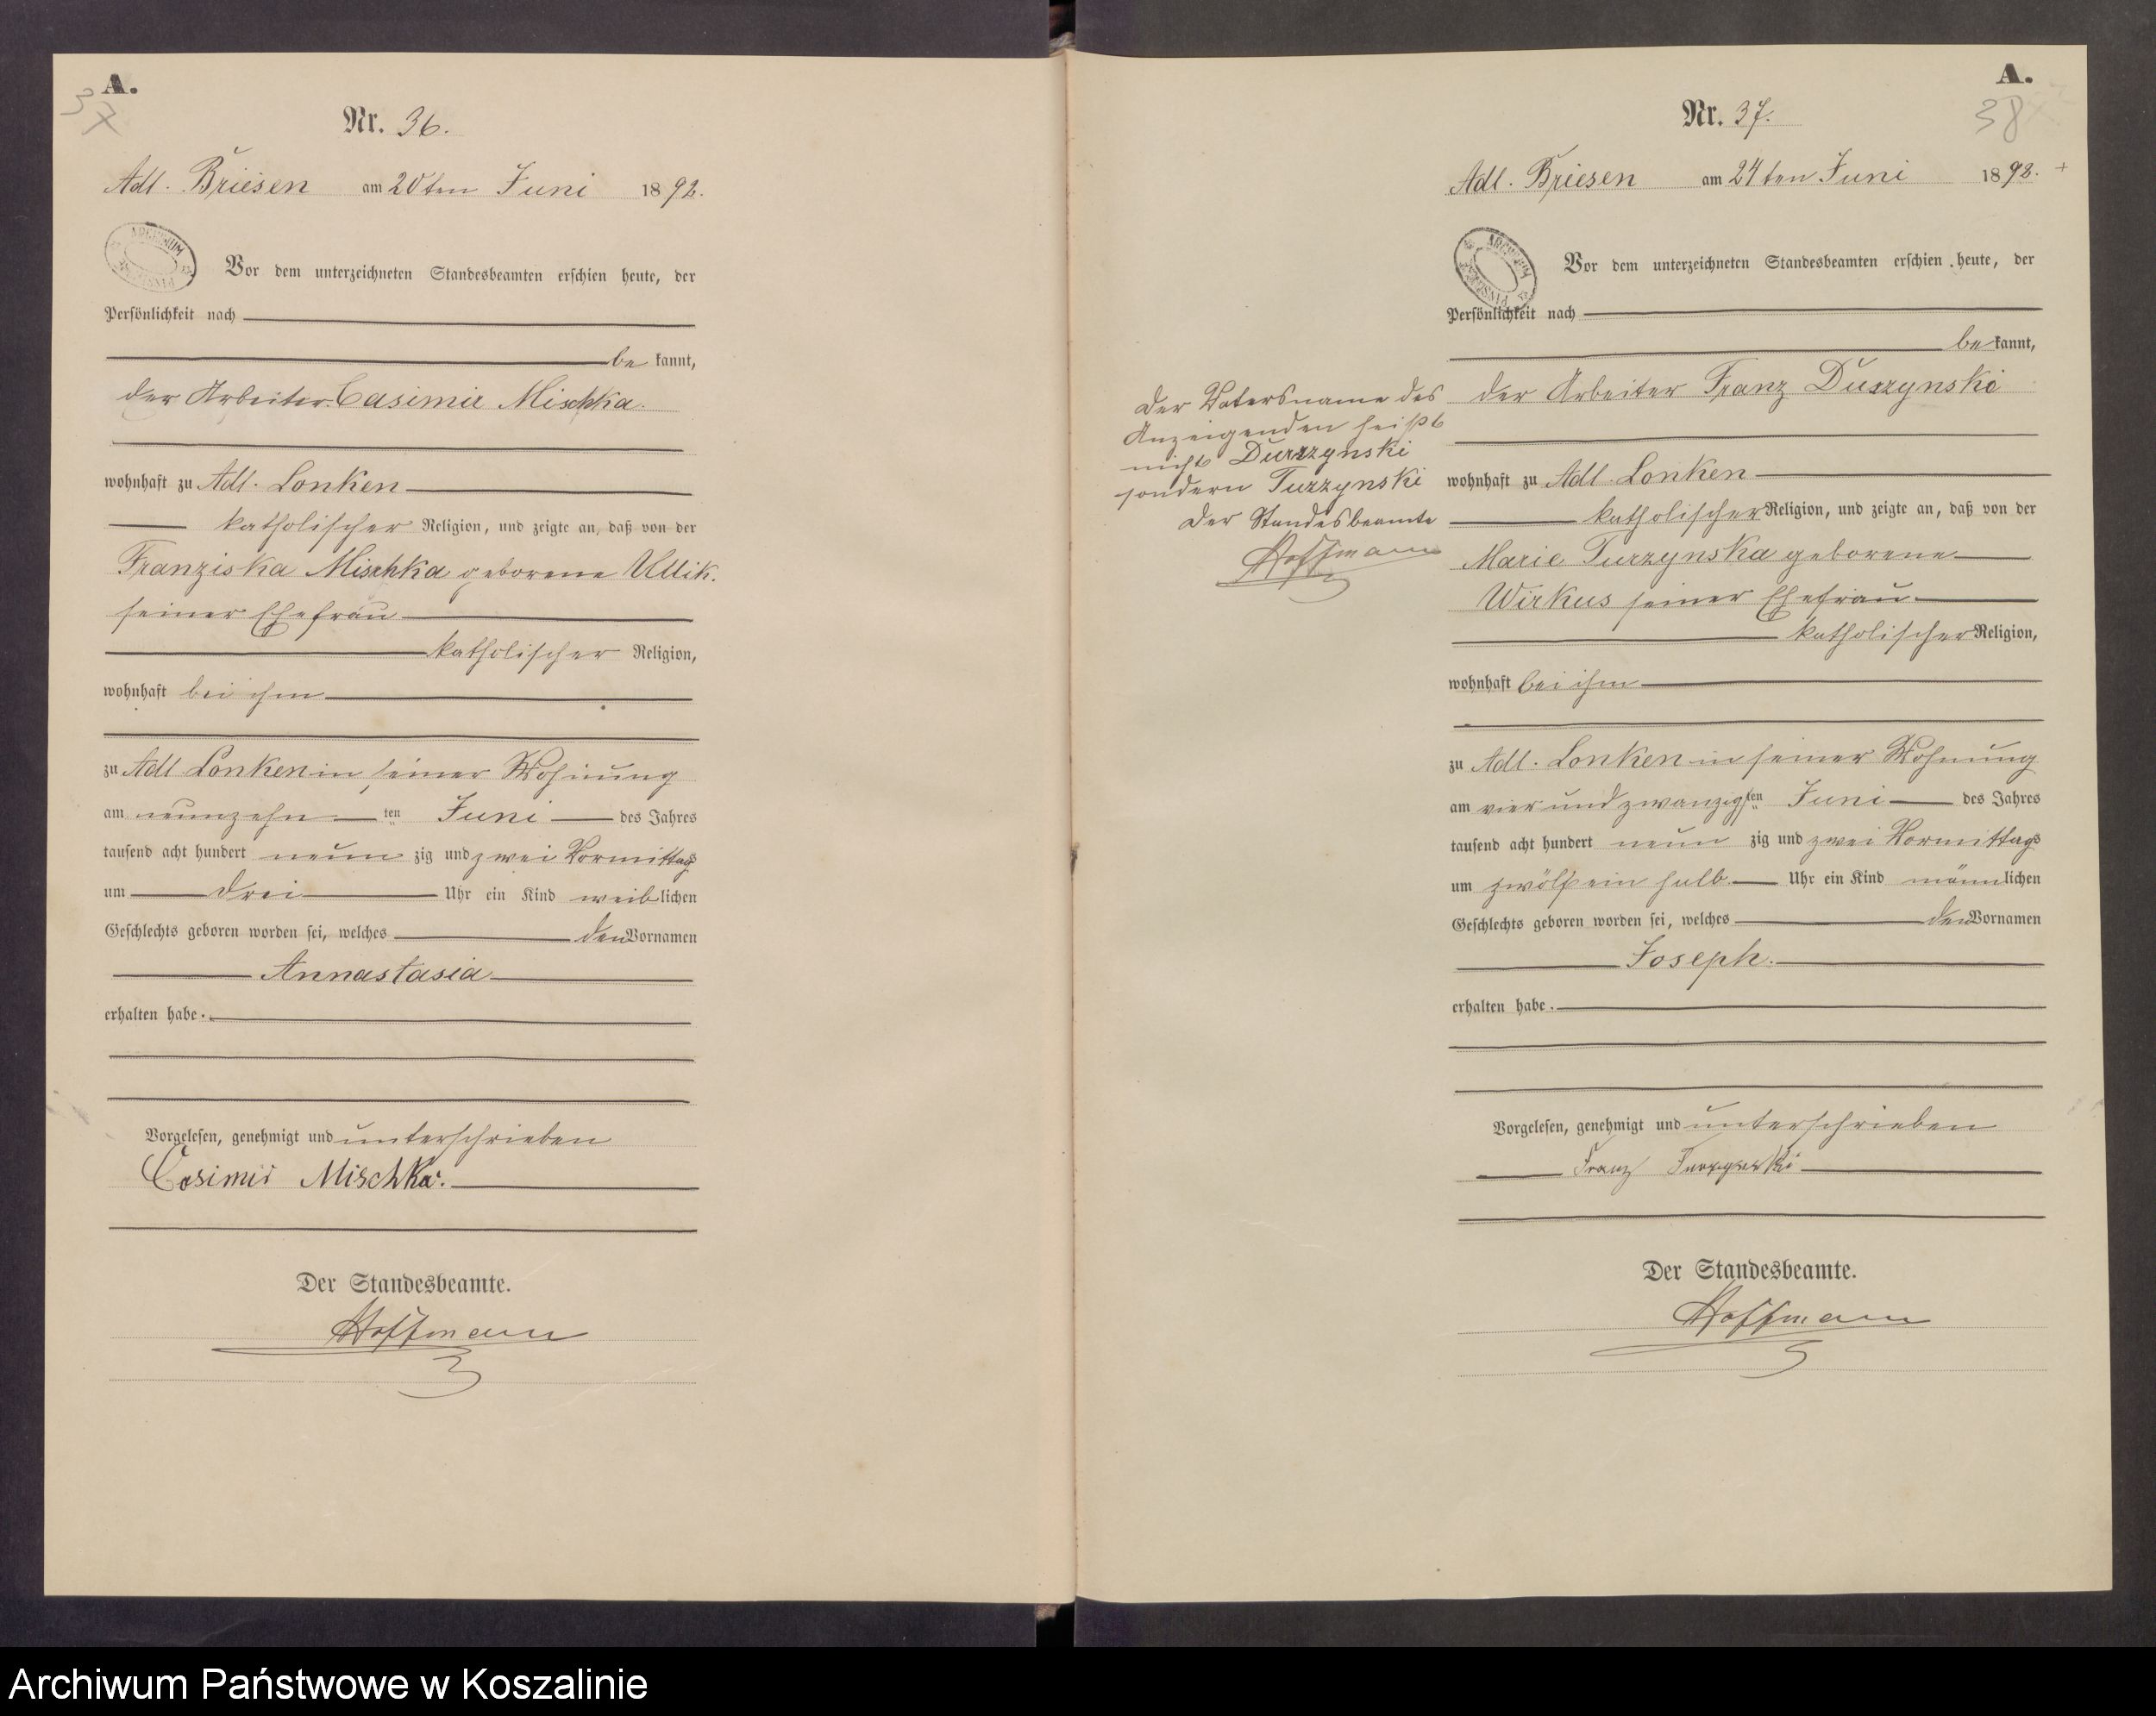 A.
37
Nr. 36.
Adl. Briesen am 20ten Juni 1892.
ARCHIWUM
Vor dem unterzeichneten Standesbeamten erschien heute, der
Persönlichkeit nach
be kannt,
der Arbeiter Casimir Mischka.
wohnhaft zu Adl. Lonken
katholischer Religion, und zeigte an, daß von der
Franziska Mischka geborene Ullik.
seiner Ehefrau
katholischer Religion,
wohnhaft bei ihm
zu Adl Lonken in seiner Wohnung
am neunzehn ten Juni des Jahres
tausend acht hundert neun zig und zwei Vormittags
um drei Uhr ein Kind weiblichen
Geschlechts geboren worden sei, welches den Vornamen
Annastasia
erhalten habe.
Vorgelesen, genehmigt und unterschrieben
Casimir Mischka.
Der Standesbeamte.
Hoffmann
A.
38
Nr. 37.
Adl. Briesen am 24ten Juni 1892.
ARCHIWUM
Vor dem unterzeichneten Standesbeamten erschien heute, der
Persönlichkeit nach
be kannt,
der Arbeiter Franz Duszynski
wohnhaft zu Adl. Lonken
katholischer Religion, und zeigte an, daß von der
Marie Turzynska geborene
Wirkus seiner Ehefrau
katholischer Religion,
wohnhaft bei ihm
zu Adl. Lonken in seiner Wohnung
am vier und zwanzigsten Juni des Jahres
tausend acht hundert neun zig und zwei Vormittags
um zwölf ein halb Uhr ein Kind männlichen
Geschlechts geboren worden sei, welches den Vornamen
Joseph.
erhalten habe.
Vorgelesen, genehmigt und unterschrieben
Franz Turzynski
Der Standesbeamte.
Hoffmann
Der Vatersname des
Anzeigenden heißt
nicht Durzzynski
sondern Turzynski
Der Standesbeamte
Hoffmann
Archiwum Państwowe w Koszalinie